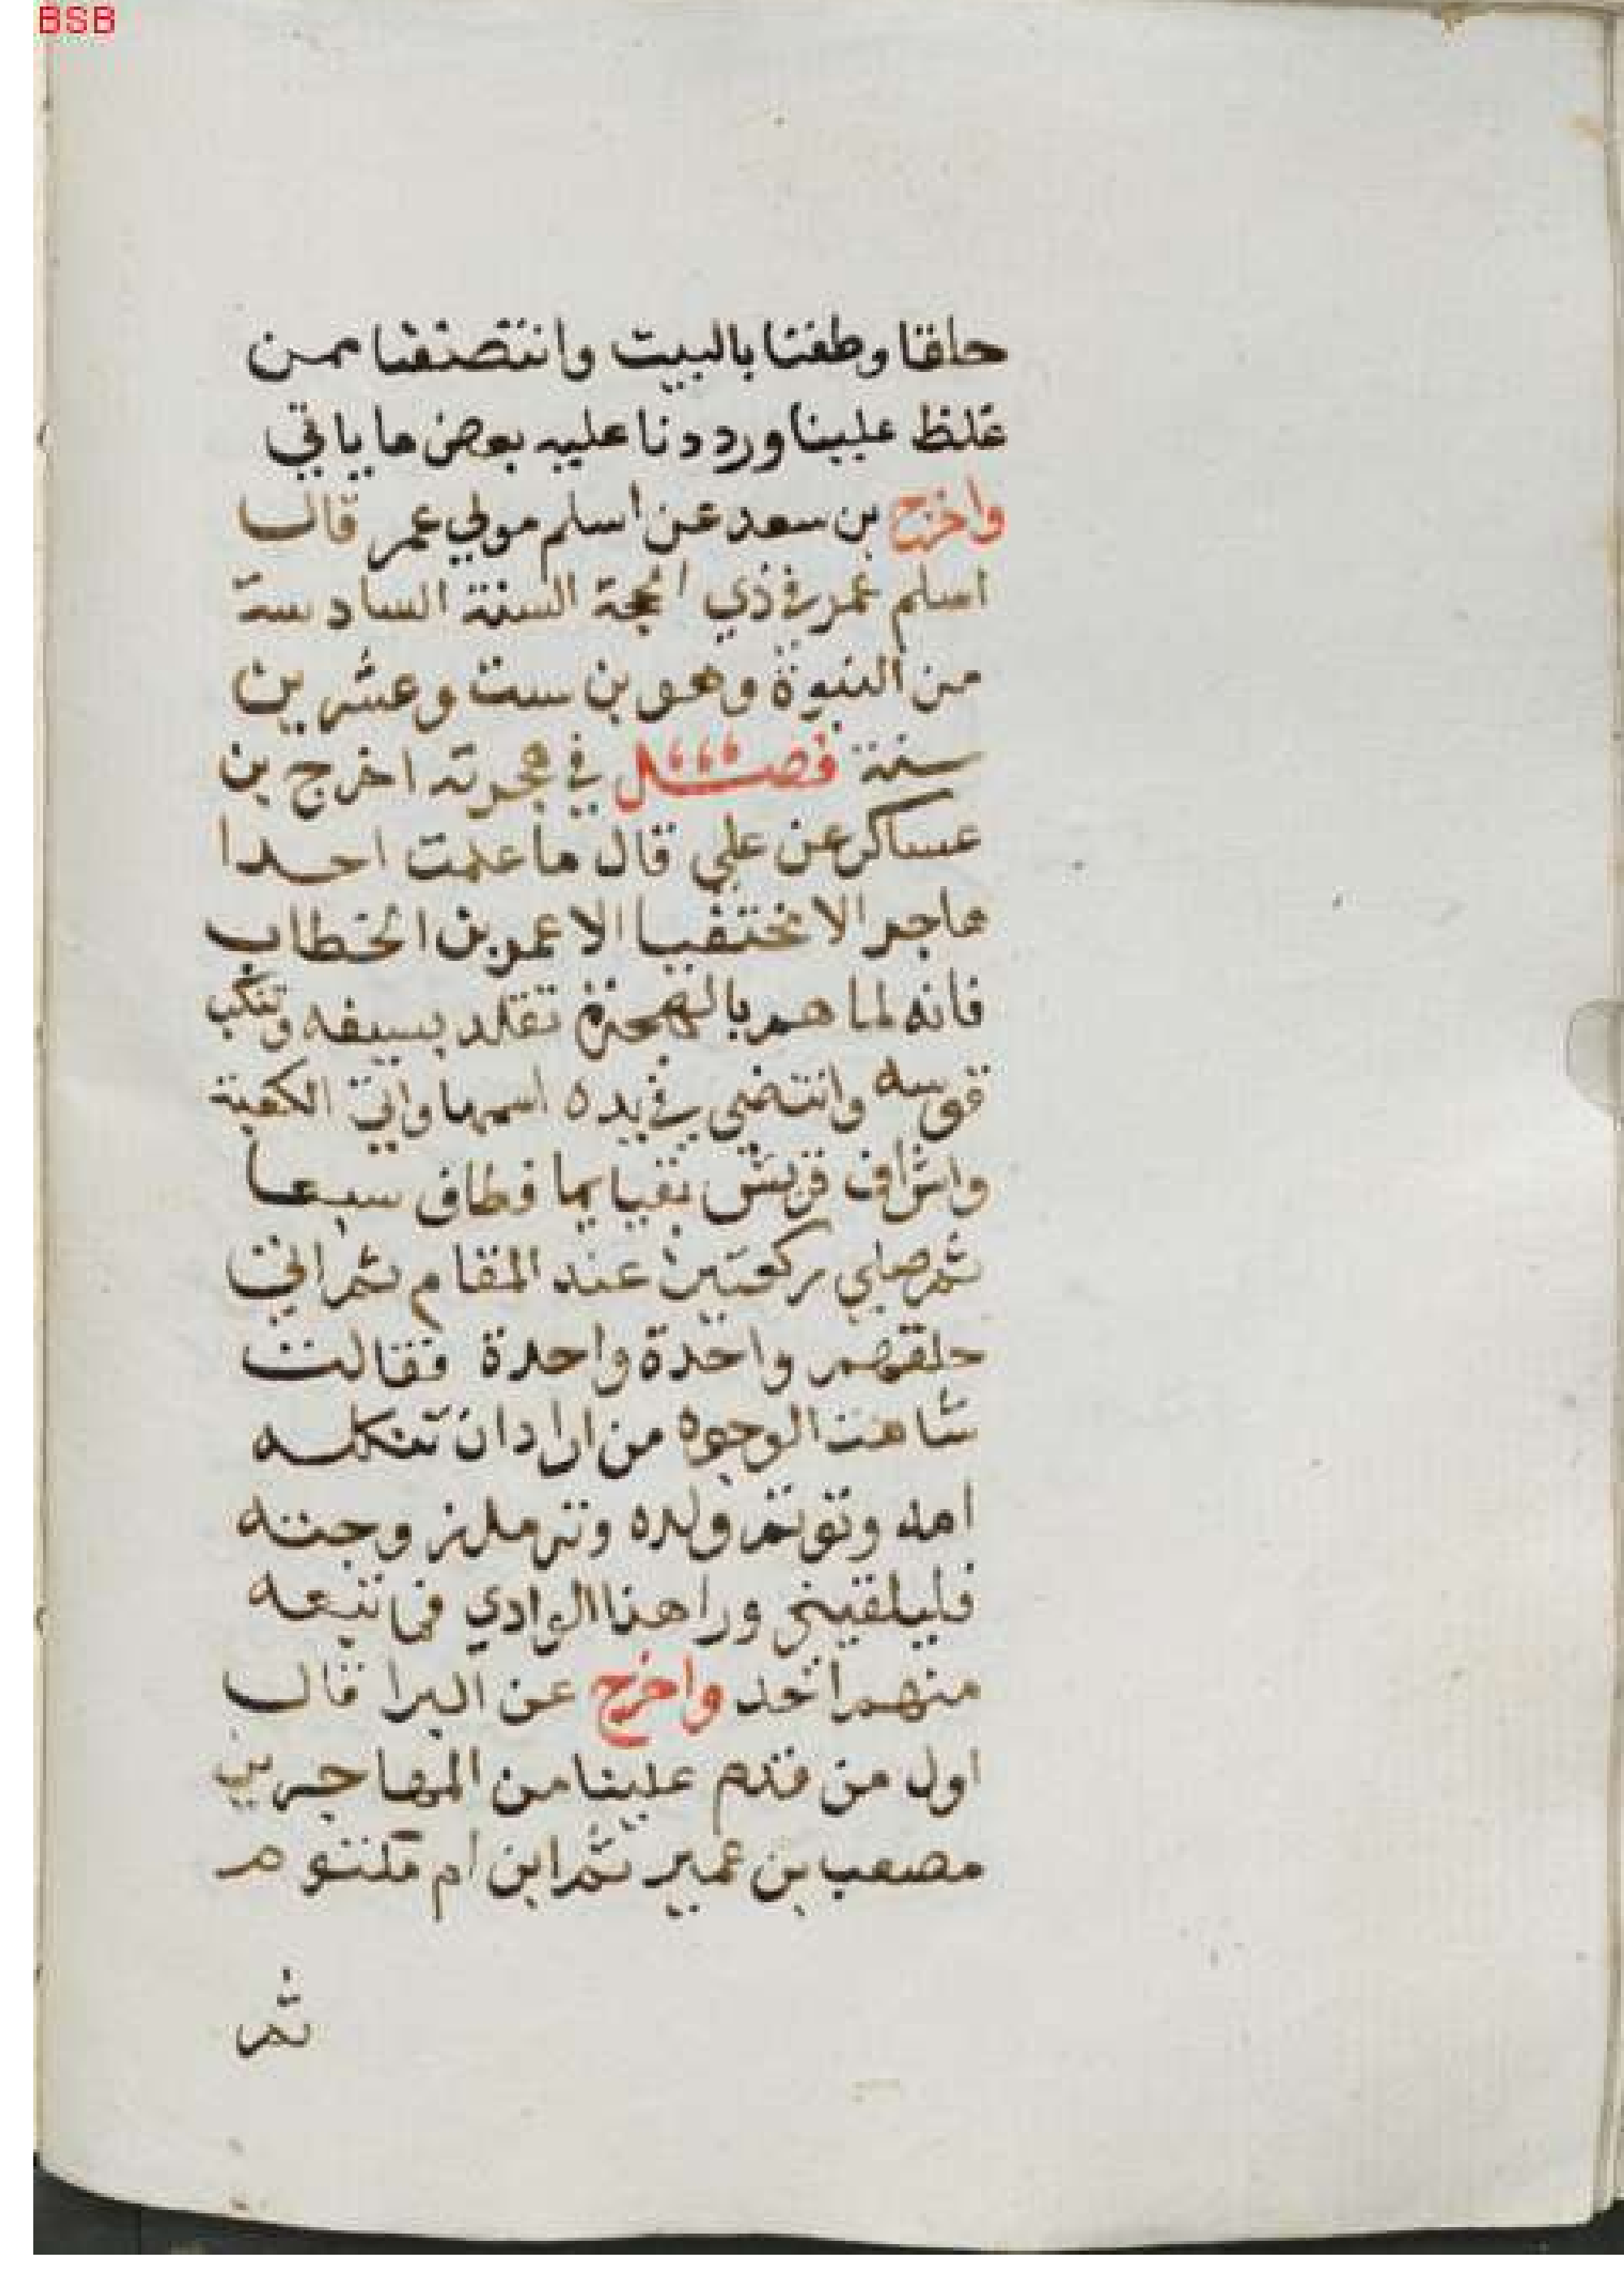 BSB
حلقا وطفنا بالبيت وانتصنفنا ممن
غلظ علينا ورددنا عليه بعض ما ياتي
واخرج بن سعد عن اسلم مولي عمر قال
اسلم عمر في ذي الحجة السنة السادسة
من النبوة وهو بن ست وعشرين
سنة فصل في هجرته اخرج بن
عساكر عن علي قال ما علمت احدا
هاجر الا مختفيا الا عمر بن الخطاب
فانه لما هم بالهجرة تقلد بسيفه وتنكب
قوسه وانتضى في يده اسهما واتي الكعبة
واشراف قريش بفنايها فطاف سبعا
ثم صلي ركعتين عند المقام ثم اتي
حلقهم واحدة واحدة فقالت
شاهت الوجوه من اراد ان تثكله
امه وتوتم ولده وترمل زوجته
فليلقيني ورا هذا الوادي فما تبعه
منهم احد واخرج عن البرا قال
اول من قدم علينا من المهاجرين
مصعب بن عمير ثم ابن ام مكتوم
ثم